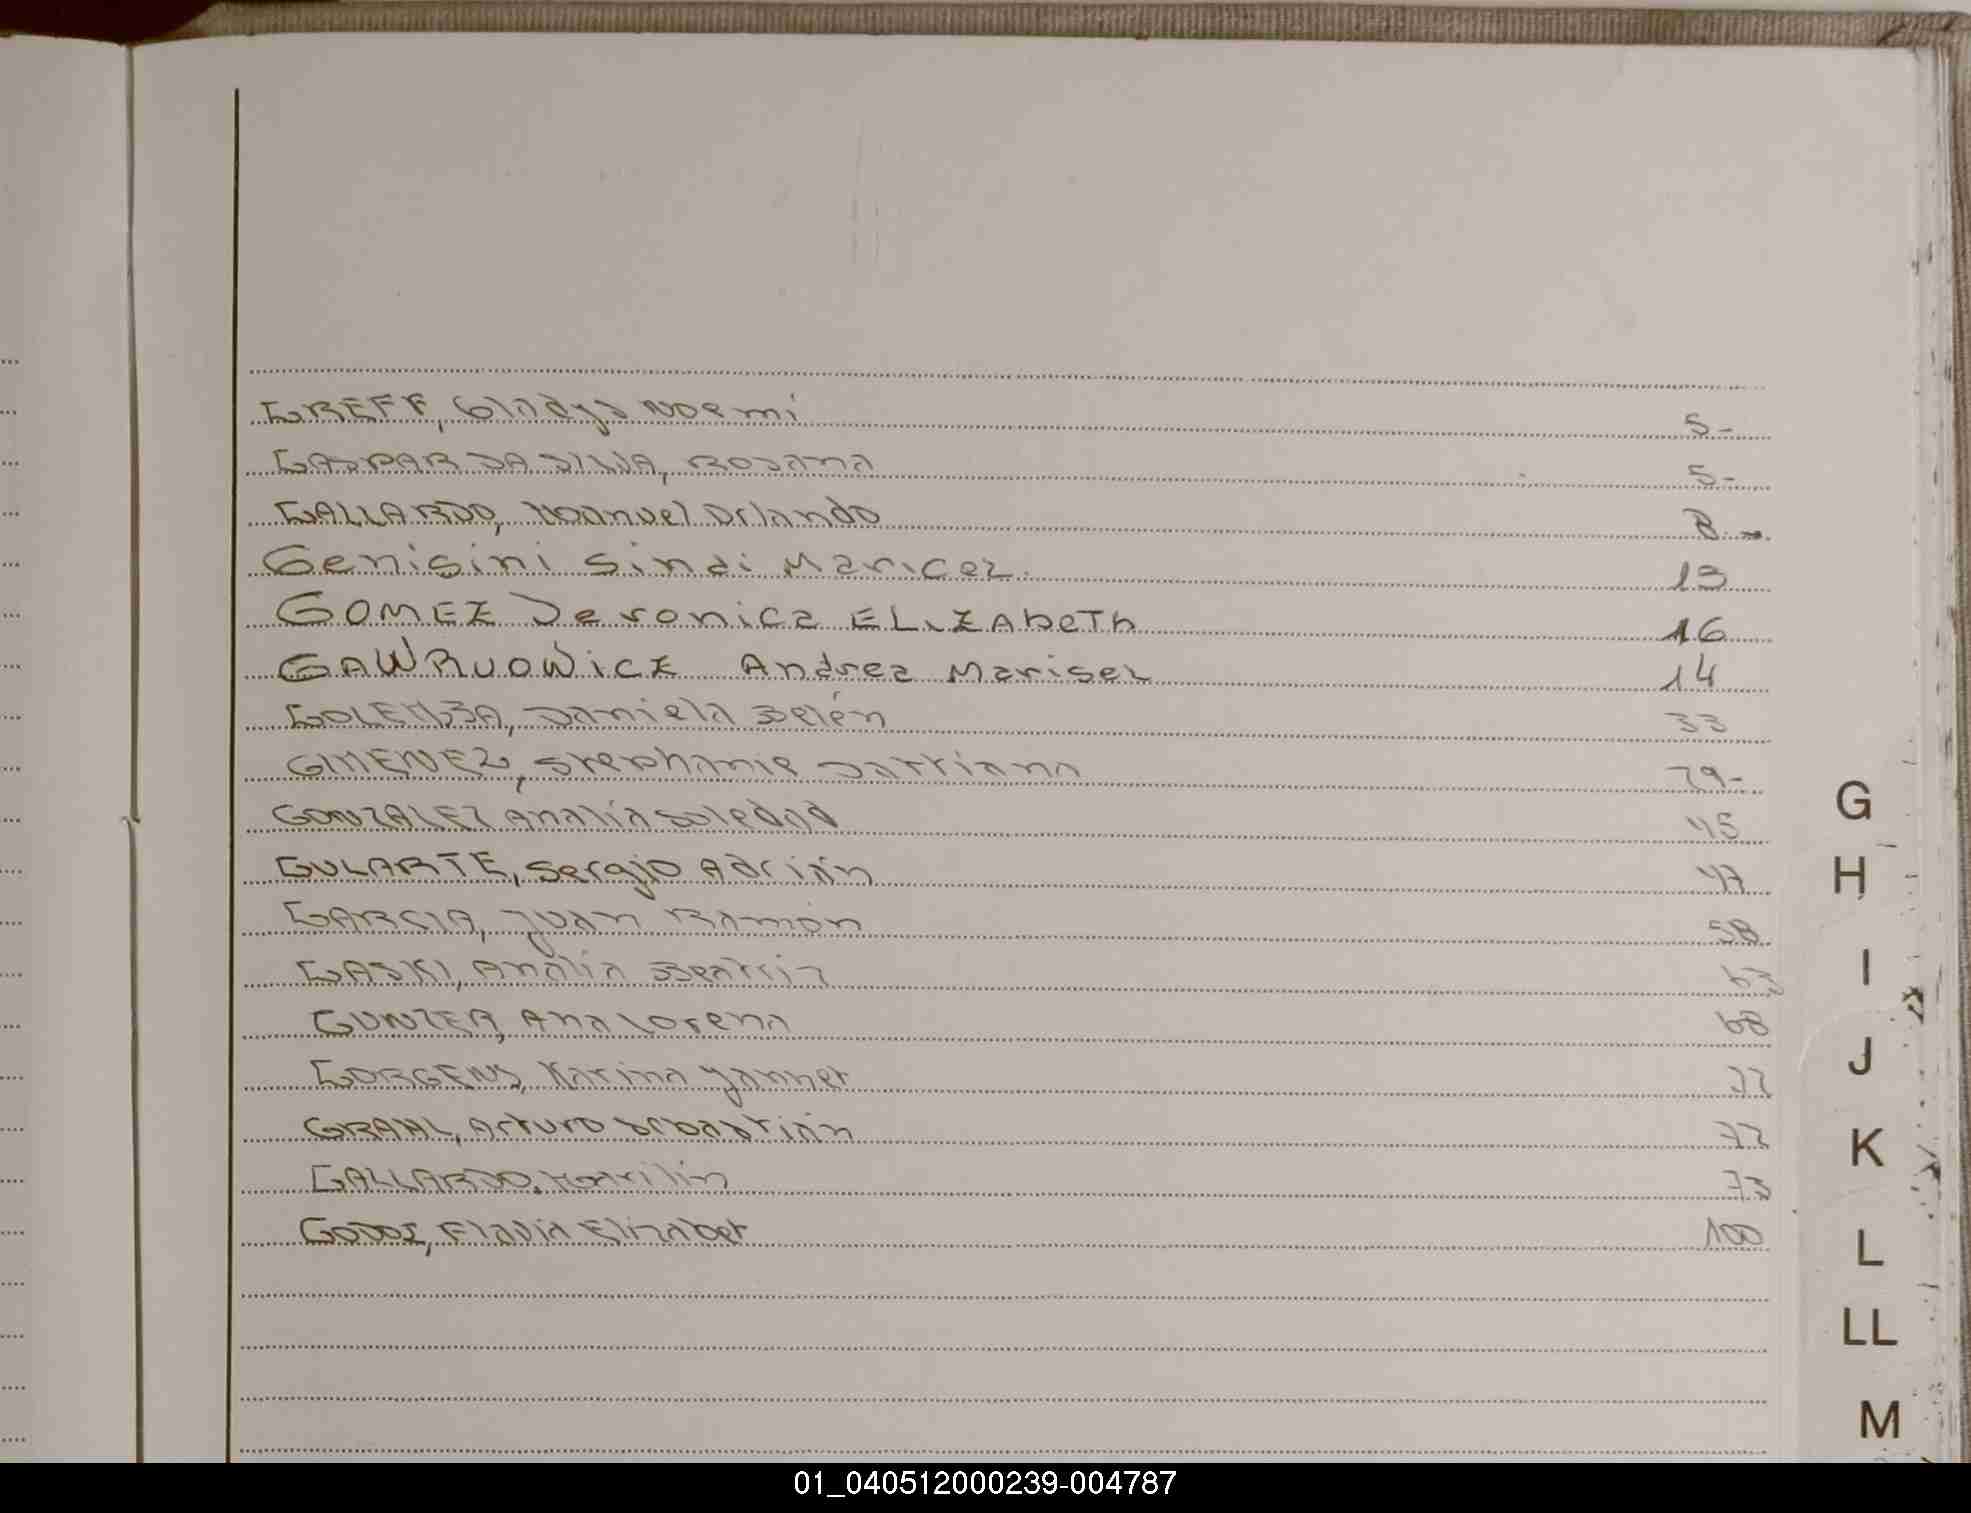 GREFF, Gladys Noemi 5-
GASPAR DA SILVA, Rosana 5-
GALLARDO, Manuel Orlando 8-
Genisini Sindi Maricel 13
GOMEZ Veronica ELIZAbeTh 16
GAWRUOWicZ Andrea Marisel 14
GOLEMBA, Daniela Belén 33
GIMENEZ, Stephanie 29-
GONZALEZ Analía Soledad 45
GULARTE, Sergio Adrián 47
GARCIA, Juan Ramón 58
GASKI, Analía Beatriz 63
GUNZER, Ana Lorena 68
GORGENS, Karina Yannet 72
GRAHL, Arturo Sebastián 72
GALLARDO, Marilin 73
GODOI, Flavia Elizabet 100
G
H
I
J
K
L
LL
M
01_040512000239-004787